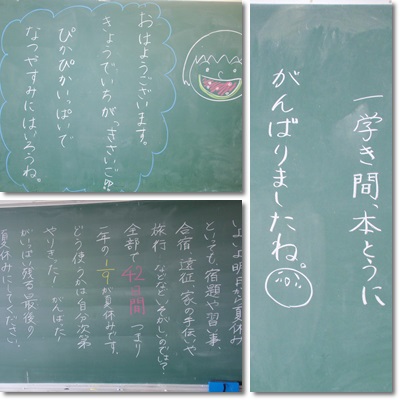 おはようございます。
きょうでいちがっきさいご
ぴかぴかいっぱいで
なつやすみにはいろうね。
一学き間、本とうに
がんばりましたね。
いよいよ明日から夏休み
といっても、宿題や習い事、
合宿、遠征、家の手伝いや
旅行 などなどいそがしいのでは?
全部で42日間 つまり
一年の が夏休みです。
どう使うかは自分次第
やりきった! がんばった!
がいっぱい残る最後の
夏休みにしてください。